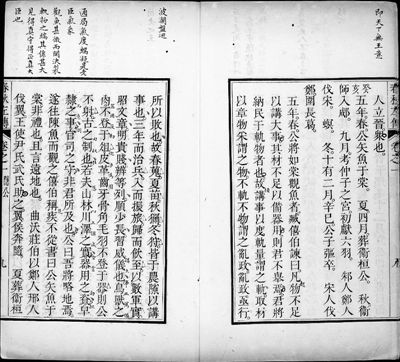 人立晉衆也。
五年春公矢魚于棠。夏四月葬衞桓公。秋衞
師入郕。九月考仲子之宮初獻六羽。邾人鄭人
伐宋。螟。冬十有二月辛巳公子彄卒。宋人伐
鄭圍長葛。
五年春公將如棠觀魚者臧僖伯諫曰凡物不足
以講大事其材不足以備器用則君不舉焉君將
納民于軌物者也故講事以度軌量謂之軌取材
以章物采謂之物不軌不物謂之亂政亂政亟行
所以敗也故春蒐夏苗秋獮冬狩皆于農隙以講
事也三年而治兵入而振旅歸而飲至以數軍實
昭文章明貴賤辨等列順少長習威儀也鳥獸之
肉不登于俎皮革齒牙骨角毛羽不登于器則公
不射古之制也若夫山林川澤之實器用之資皁
隸之事官司之守非君所及也公曰吾將略地焉
遂往陳魚而觀之僖伯稱疾不從書曰公矢魚于
棠非禮也且言遠地也 曲沃莊伯以鄭人邢人
伐翼王使尹氏武氏助之翼侯奔隨 夏葬衞桓
春秋左傳 卷之一 隱公 九